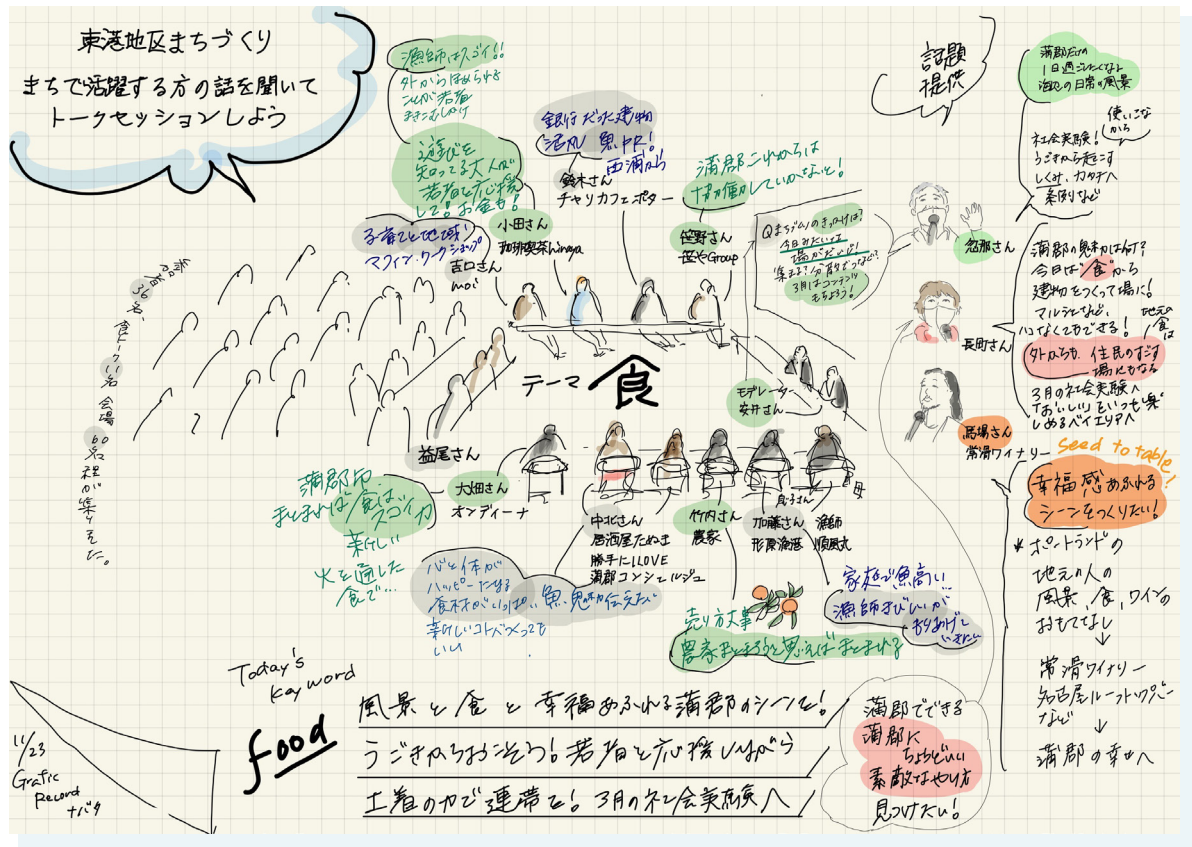 東港地区まちづくり
まちで活躍する方の話を聞いて
トークセッションしよう
漁師はスゴイ!!
外からほめられる
ことが若者
まきこむしかけ
遊びを
知ってる大人が
若者を応援
して!お金も!
小田さん
珈琲喫茶hinaya
銀行だった建物
活用 魚PR!
西浦から
鈴木さん
チャリカフェポター
蒲郡これからは
協働していかないと!
笹野さん
笹やGroup
子育てと地域
マフィン・ワークショップ
吉口さん
moi
Qまちづくりのきっかけは?
今日みたいな
場がだいじ!
集まる?分散もつなぐ?
3月はコンテンツ
もちよろう!
話題
提供
蒲郡だけの
1日過ごしたくなる
海辺の日常の風景
使いこな
から
社会実験!
うごきから起こす
しくみ、カタチへ
条例など
忽那さん
蒲郡の魅力は何?
今日は"食"から
建物をつくって場に!
マルシェなど、
ハコなくてもできる!
地元の
食は
外からも、住民のすごす
場にもなる
3月の社会実験へ
「おいしい」をいつも楽
しめるベイエリアへ
長町さん
馬場さん
常滑ワイナリー
Seed to table!
幸福感あふれる
シーンをつくりたい!
* ポートランドの
地元の人の
風景、食、ワインの
おもてなし
↓
常滑ワイナリー
名古屋ルーフトップバー
など
↓
蒲郡の幸せへ
参加者36名、食トーク11名 会場60名程が集いました。
テーマ 食
モデレーター
安井さん
益尾さん
大畑さん
オンディーナ
蒲郡市
まとまれば「食」は
スゴイ力
新しい
火を通した
食で…
中北さん
居酒屋たぬき
勝手にLOVE
蒲郡コンシェルジュ
竹内さん
農家
加藤さん
形原漁港
息子さん
漁師
順風丸
母
心と体が
ハッピーになる
食材がいっぱい 魚、魅力伝えたい
新しいコトバつくっても
いい
売り方大事
農家まとまろうと思えばまとまれる
家庭で魚高い…
漁師きびしいが…
もりあげて
いきたい
Today's
keyword
food
風景と食と幸福あふれる蒲郡のシーンを!
うごきからおこそう!若者を応援しながら
土着の力で連帯を!3月の社会実験へ
蒲郡でできる
蒲郡に
ちょうどいい
素敵なやり方
見つけたい!
11/23
Grafic
Record
ナバタ